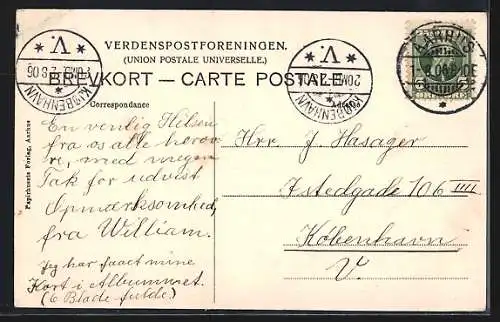 VERDENSPOSTFORENINGEN.
(UNION POSTALE UNIVERSELLE.)
BREVKORT — CARTE POSTALE
Correspondance
Papirhusets Forlag, Aarhus
V.
KJØBENHAVN
V.
KJØBENHAVN
AARHUS
En venlig Hilsen
fra os alle herov-
re, med megen
Tak for udvist
Opmærksomhed,
fra William.
Jeg har faaet mine
Kort i Albummet.
(6 Blade fulde.)
Hrr. J. Hasager
Istedgade 106 IIII
København
V.